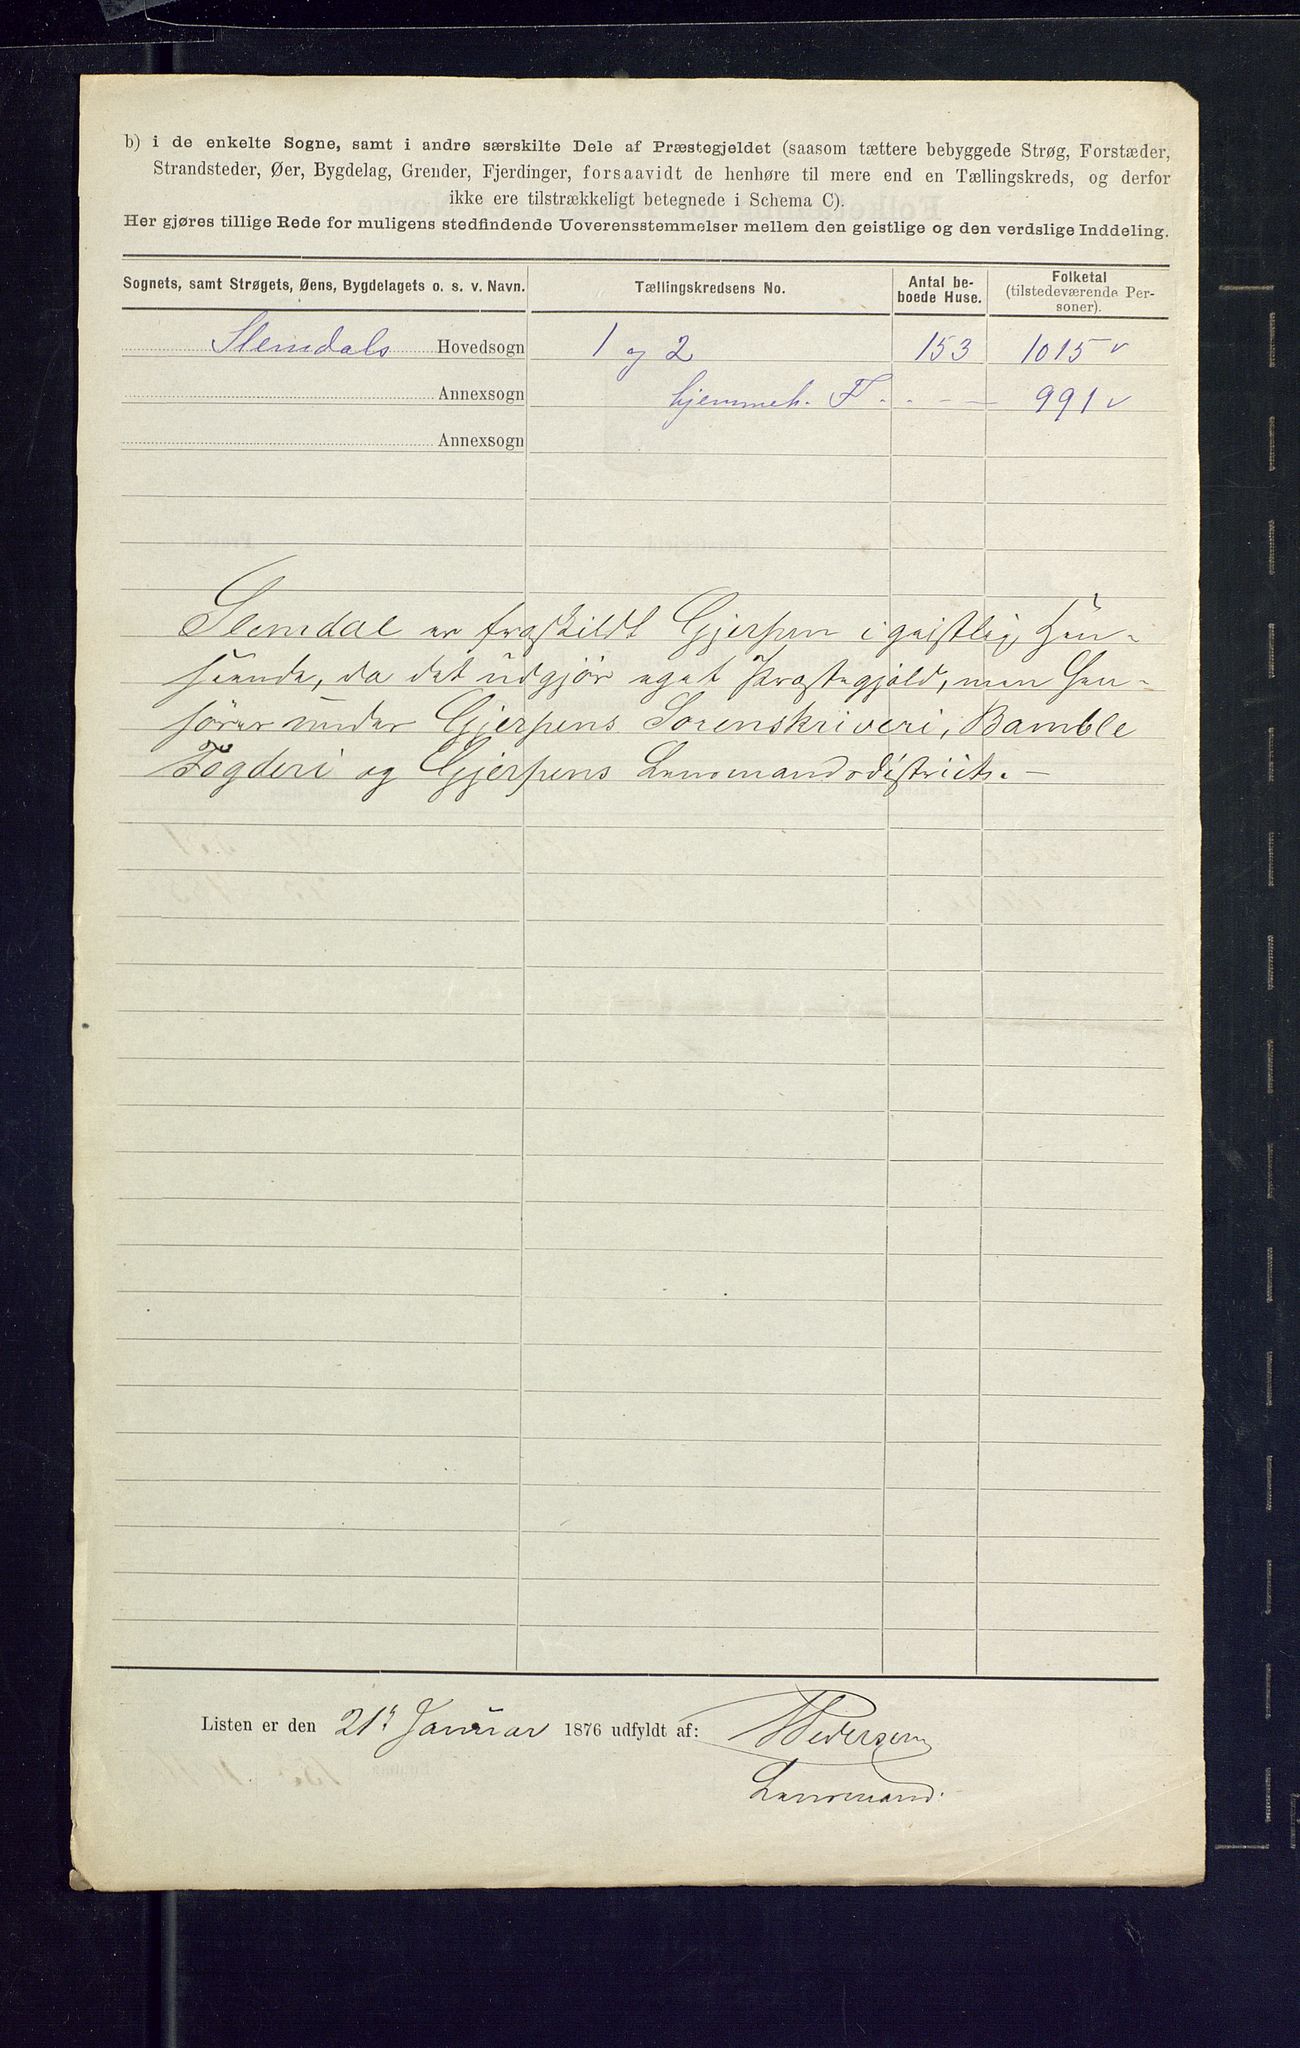 b) i de enkelte Sogne, samt i andre særskilte Dele af Præstegjeldet (saasom tættere bebyggede Strøg, Forstæder,
Strandsteder, Øer, Bygdelag, Grender, Fjerdinger, forsaavidt de henhøre til mere end en Tællingskreds, og derfor
ikke ere tilstrækkeligt betegnede i Schema C).
Her gjøres tillige Rede for muligens stedfindende Uoverensstemmelser mellem den geistlige og den verdslige Inddeling.
Sognets, samt Strøgets, Øens, Bygdelagets o. s. v. Navn. Tællingskredsens No. Antal beboede Huse. Folketal (tilstedeværende Personer).
Slemdals Hovedsogn 1 og 2 153 1015 v
Annexsogn hjemmeh. F. - - - 991 v
Annexsogn
Slemdal er fraskildt Gjerpen i geistlig Hen-
seende, da det udgjør eget Præstegjeld, men hen-
hører under Gjerpens Sorenskriveri, Bamble
Fogderi og Gjerpens Lensmandsdistrikt. —
Listen er den 21de Januar 1876 udfyldt af: Pedersen
Lensmand.